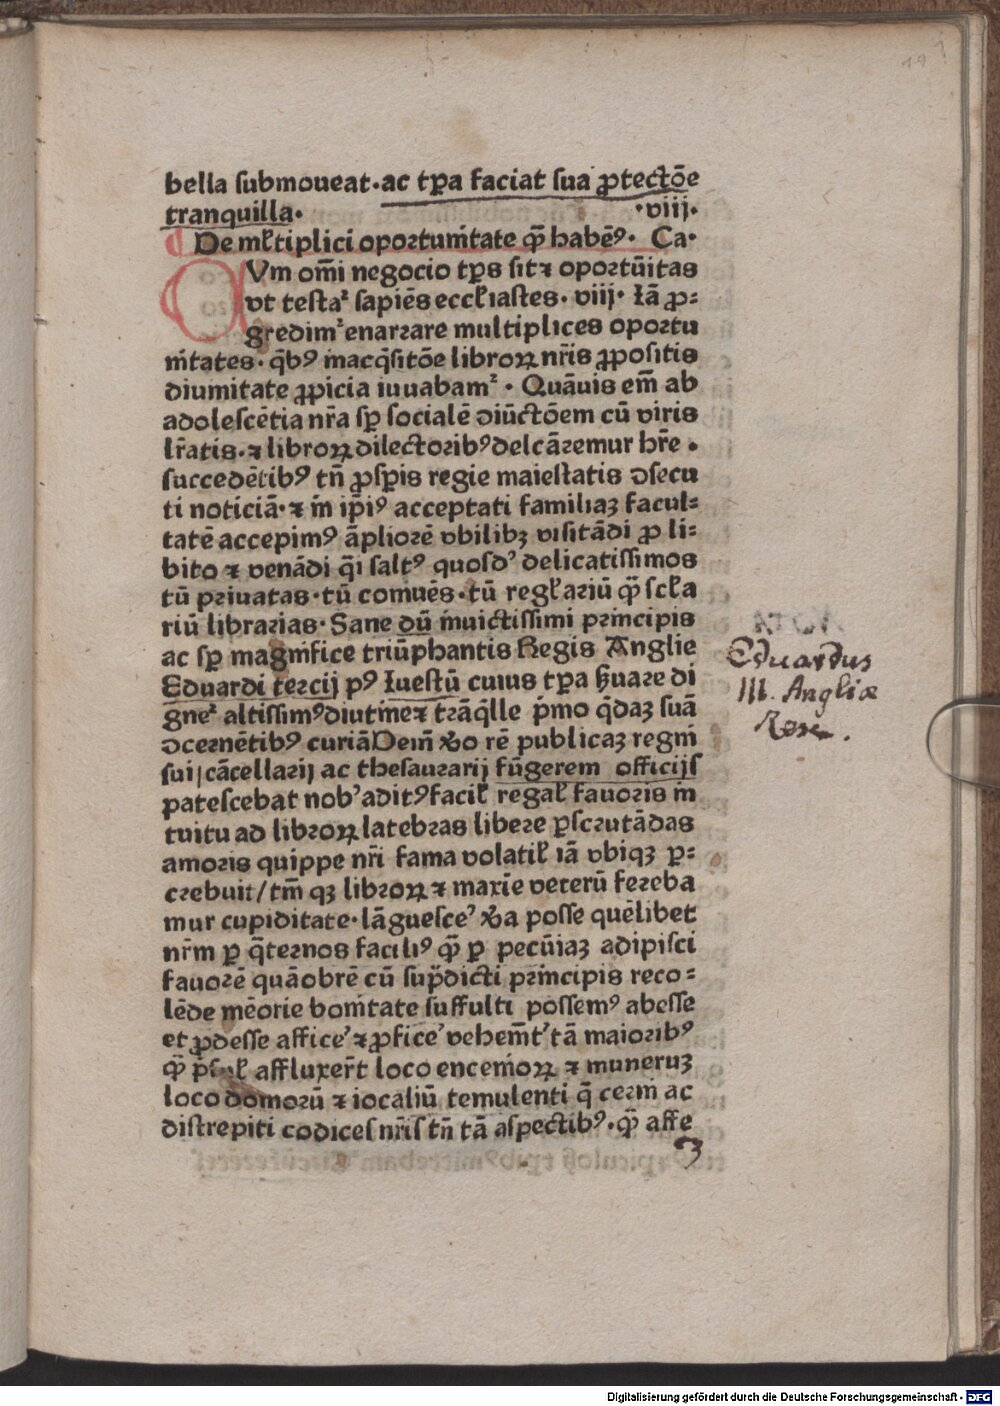 bella submoueat·ac tꝑa faciat sua ꝓtectōe
tranquilla· ·viij·
De ml̄tiplici oportum̄tate q̄ꝫ habēꝰ· Ca·
Vm om̄i negocio tꝑs sit ⁊ oportūitas
vt testaꝛ sapiēs eccl̄iastes· viij· Iā ꝓ⸗
gredimꝛ enarrare multiplices oportu
nītates· q̄bꝰ inacq̄sitōe libroꝝ nr̄is ꝓpositis
diuinitate ꝓpicia iuuabamꝛ · Quāuis em̄ ab
adolescētia nr̄a sꝑ socialē diūctōem cū viris
lr̄atis·⁊ libroꝝ dilectoribꝰ delcāremur hr̄e·
succedētibꝰ tn̄ ꝓsꝑis regie maiestatis ꝯsecu
ti noticiā·⁊ in ip̄iꝰ acceptati familiaꝫ facul⸗
tatē accepimꝰ āpliorē vbilibꝫ visitādi ꝓ li⸗
bito ⁊ venādi q̄i saltꝰ quosdʼ delicatissimos
tū priuatas·tū comuēs·tū regl̄ariū q̄ꝫ scl̄a
riū librarias· Sane dū inuictissimi principis
ac sꝑ magnifice triūphantis Regis Anglie
Eduardi tercij pꝰ Iuestū cuius tꝑa ẜuare di
gneꝛ altissimꝰ diutine⁊ trāq̄lle p̄mo q̄daꝫ suā
ꝯcernētibꝰ curiā Dem̄ ꝟo rē publicaꝫ regni
sui/cācellarij ac thesaurarij fūgerem officijs
patescebat nobʼ aditꝰ facil̄ regal̄ fauoris in
tuitu ad libroꝝ latebras libere ꝑscrutādas
amoris quippe nr̄i fama volatil̄ iā vbiqꝫ ꝑ⸗
crebuit/tm̄ qꝫ libroꝝ ⁊ maxīe veterū fereba
mur cupiditate·lāguesceʼ ꝟa posse quēlibet
nr̄m ꝑ q̄ternos faciliꝰ q̄ꝫ ꝑ pecūiaꝫ adipisci
fauorē quāobrē cū sup̄dicti principis reco⸗
lēde mēorie bonitate suffulti possemꝰ abesse
et ꝓdesse afficeʼ ⁊ ꝓficeʼ vehem̄tʼ tā maioribꝰ
q̄ꝫ affluxer̄t loco encenioꝝ ⁊ muneruꝫ
loco domorū ⁊ iocaliū temulenti q̄ cerni ac
distrepiti codices nr̄is tn̄ tā aspectibꝰ·q̄ꝫ affe
Eduardus
III. Angliæ
Rex.
Digitalisierung gefördert durch die Deutsche Forschungsgemeinschaft - DFG